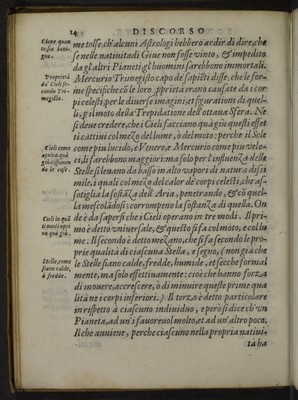 14 DISCORSO
Gioue quan
to sia beni
gno.
Proprietà
de' Cieli se-
condo Tri-
megisto.
Cieli come
operino quà
giù cause
no le cose.
Cieli in quã
ti modi opri
no quà giù.
Stelle, come
siano calde,
e fredde.
me tolse. ch'alcuni Astrologi hebbero ardir di dire, che
se nelle natiuità di Giue non fosse vinto, & impedito
da gl'altri Pianeti gl'huomini sarebbono immortali.
Mercurio Trimegisto capo de' sapiẽti disse, che le for-
me specifiche cõ le loro ,pprietà erano causate da i cor
pi celesti, per le diuerse imagini, et figurationi di quel-
li, p il moto della Trepidatione dell'ottaua Sfera. Ne
si deue credere, che i Cieli facciano quà giù questi effet
ti cattiui col mezo del lume, ò del moto; perche il Sole
come piu lucido, e Venere, e Mercurio come piu velo-
ci, li sarebbono maggiori: ma solo per l'influenza delle
Stelle si leuano da basso in alto vapori di natura di si
mile, i quali col mezo del calor de' corpi celesti, che as-
sotiglia la sostãza dell'Aria, penetrando, & cõ quel-
la mescolãdosi; corrompeno la sostanza di quella. On
de è da sapersi che i Cieli operano in tre modi. Il pri-
mo è detto vniuersale, & questo si fà col moto, e col lu
me. Il secondo è detto mezano, che si fà secondo le pro-
prie qualità di ciascuna Stella, e segno, (non già che
le Stelle siano calde, fredde, humide, et secche formal
mente, ma solo effettiuamente: cioè che hanno forza
di mouere, accrescere, ò di minuire queste prime qua
lità ne i corpi inferiori.) Il terzo è detto particolare
in rispetto à ciascuno indiuiduo, e però si dice ch'un
Pianeta, ad un'è fauoreuol molto, et ad un'altro poco.
Il che auuiene, perche ciascuno nella propria natiui-
tà ha